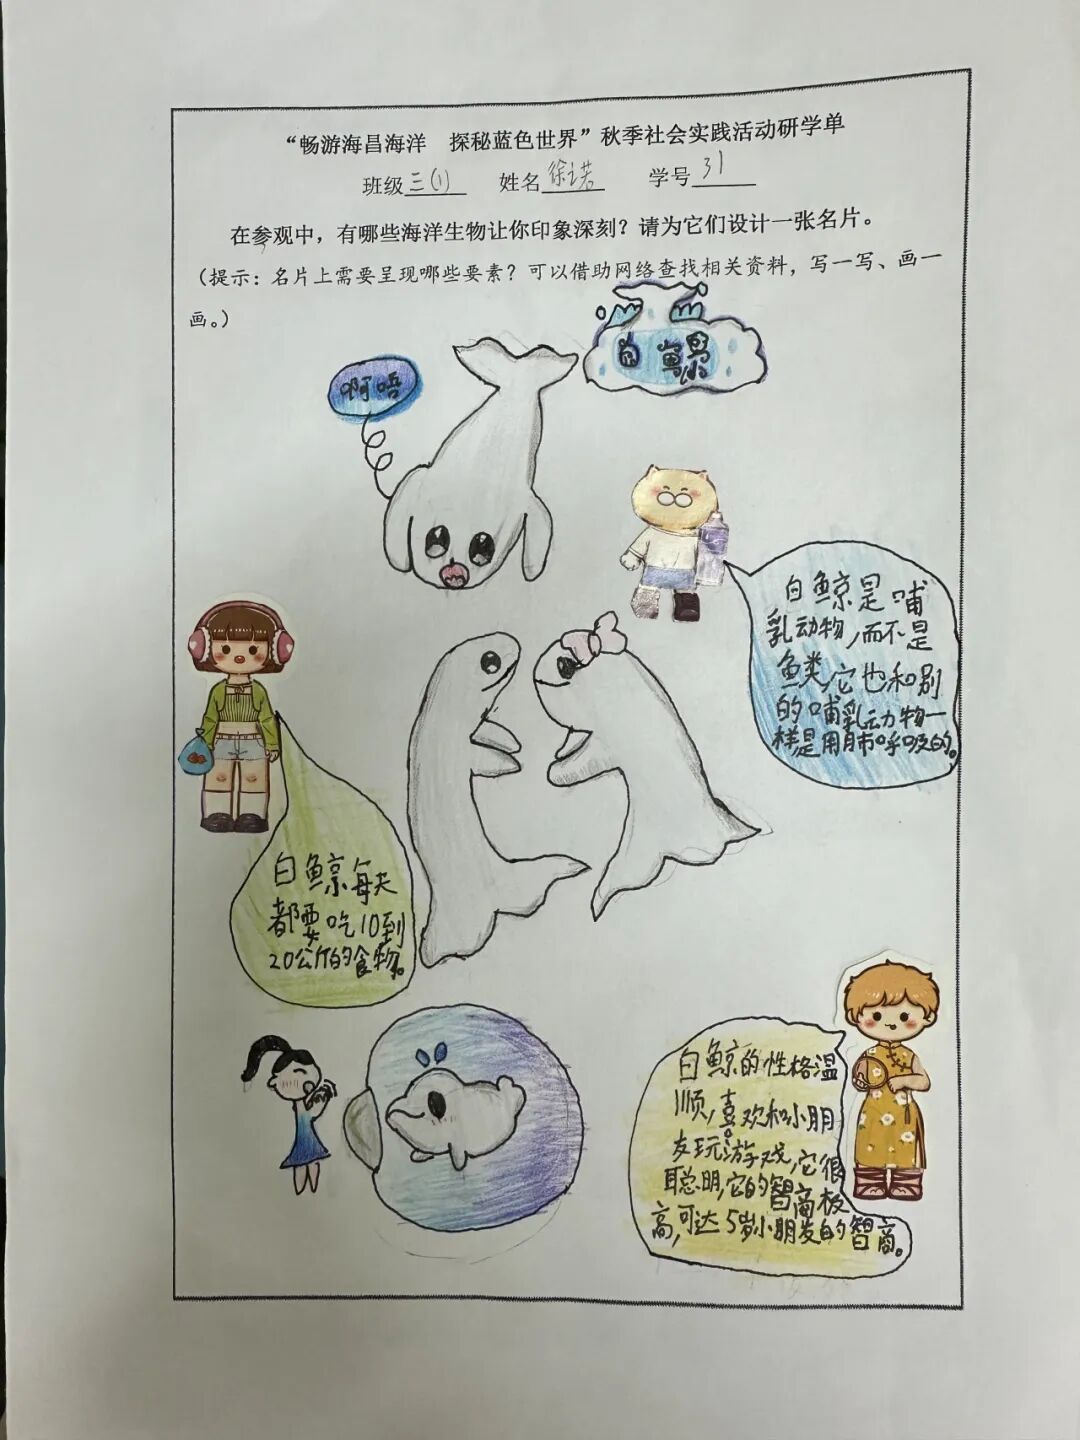 “畅游海昌海洋　探秘蓝色世界”秋季社会实践活动研学单
班级三(1)　姓名徐　　学号31
在参观中，有哪些海洋生物让你印象深刻？请为它们设计一张名片。
（提示：名片上需要呈现哪些要素？可以借助网络查找相关资料，写一写、画一
画。）
白鲸
啊唔
白鲸是哺
乳动物,而不是
鱼类,它也和别
的哺乳动物一
样是用肺呼吸的。
白鲸每天
都要吃10到
20公斤的食物。
白鲸的性格温
顺,喜欢和小朋
友玩游戏,它很
聪明,它的智商极
高,可达5岁小朋友的智商。